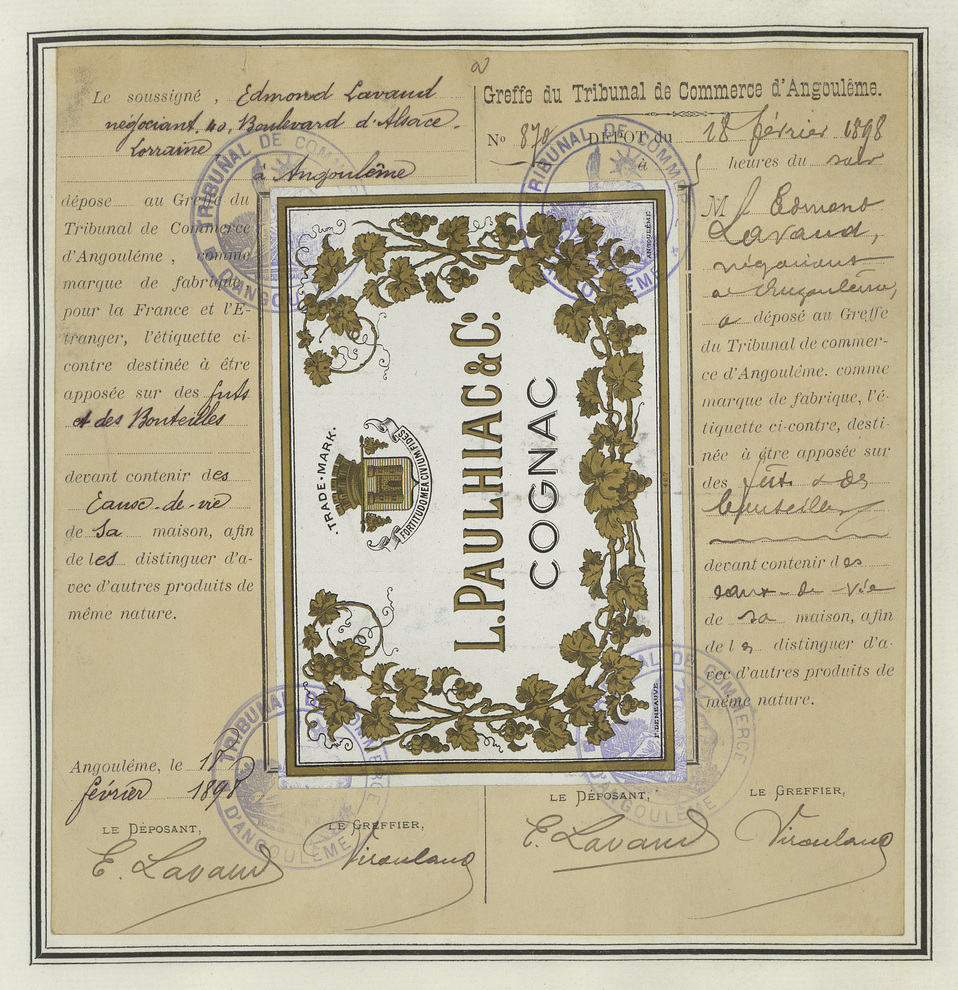 Le soussigné, Edmond Lavaud
négociant, 40, Boulevard d'Alsace-
Lorraine
à Angoulême
dépose au Greffe du
Tribunal de Commerce
d'Angoulême, comme
marque de fabrique
pour la France et l'E-
tranger, l'étiquette ci-
contre destinée à être
apposée sur des futs
et des Bouteilles
devant contenir des
Eaux-de-vie
de Sa maison, afin
de les distinguer d'a-
vec d'autres produits de
même nature.
Angoulême, le
février 1898
LE DÉPOSANT, LE GREFFIER,
E. Lavaud Viroulaud
TRADE-MARK.
FORTITUDO MEA CIVIUM FIDES
L. PAULHIAC & C.
COGNAC
ANGOULÊME
F. DENEAUVE
Greffe du Tribunal de Commerce d'Angoulême.
No 870 DÉPOT du 18 février 1898
à heures du soir
M Edmond
Lavaud,
négociant
à Angoulême,
a déposé au Greffe
du Tribunal de commer-
ce d'Angoulême. comme
marque de fabrique, l'é-
tiquette ci-contre, desti-
née à être apposée sur
des futs & des
bouteilles
devant contenir des
eaux-de-vie
de sa maison, afin
de les distinguer d'a-
vec d'autres produits de
même nature.
LE DÉPOSANT, LE GREFFIER,
E. Lavaud Viroulaud
TRIBUNAL DE COMMERCE
D'ANGOULÊME
TRIBUNAL DE COMMERCE
D'ANGOULÊME
TRIBUNAL DE COMMERCE
D'ANGOULÊME
TRIBUNAL DE COMMERCE
D'ANGOULÊME